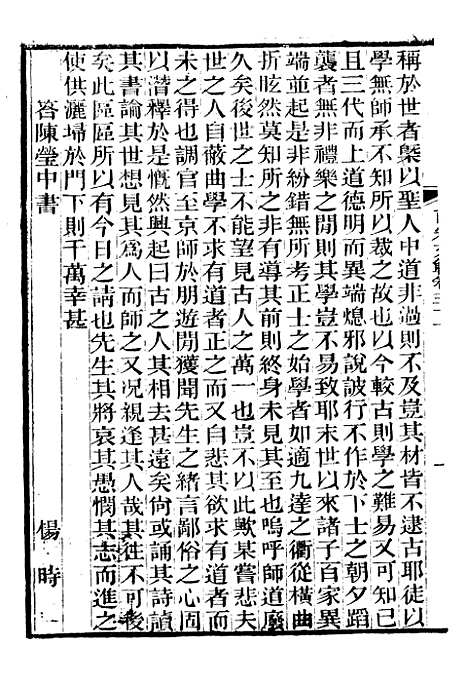 稱於世者槩以聖人中道非過則不及豈其材皆不逮古耶徒以
學無師承不知所以裁之故也以今較古則學之難易又可知已
且三代而上道德明而異端熄邪說詖行不作於下士之朝夕蹈
襲者無非禮樂之閒則學豈不易致耶末世以來諸子百家異
端並起是非紛錯無所考正士之始學者如適九逵之衢從橫曲
折眩然莫知所之非有以導其前則終身未見其至也嗚呼師道廢
久矣後世之士不能望見古人之萬一也豈不以此歟某嘗悲夫
世之人自蔽曲學不求有道者正之而又自悲其欲求有道者而
未之得也調官至京師於朋遊閒獲聞先生之緒言鄙俗之心固
以潛釋於是慨然興起曰古之人其相去甚遠矣尙或誦其詩讀
其書論其世想見其爲人而師之又况親逢其人哉其往不可後
矣此區區所以有今日之請也先生其將哀其愚憫其志而進之
使供灑埽於門下則千萬幸甚
答陳瑩中書 楊時